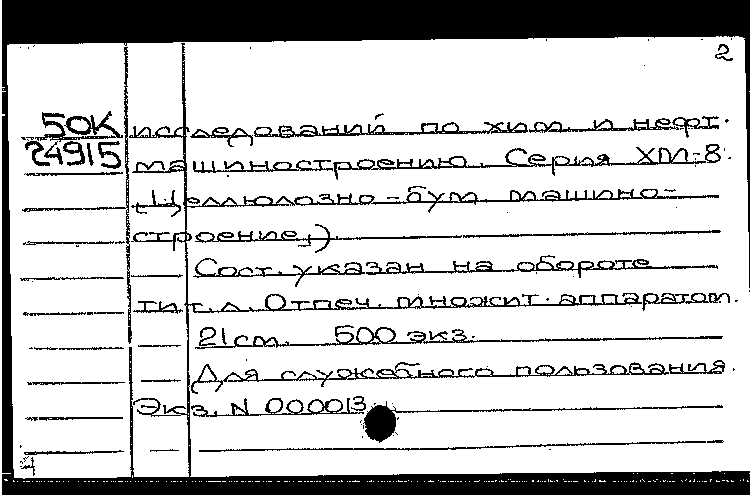 2
50К
24915
исследований по хим. и нефт.
машиностроению. Серия ХМ-8.
(Целлюлозно-бум. машино-
строение.)
Сост. указан на обороте
тит. л. Отпеч. множит. аппаратом.
21 см. 500 экз.
Для служебного пользования.
Экз. N 000013